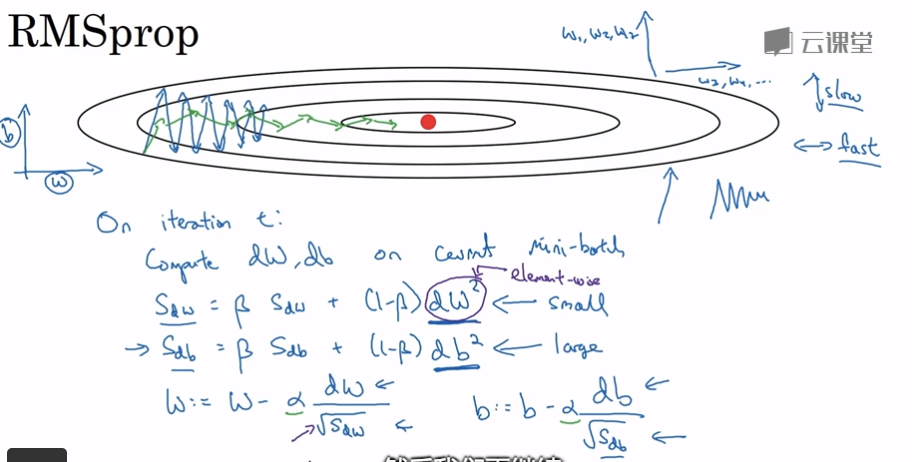 RMSprop
云课堂
w₁, w₂, w₂
w₃, w₄, ...
slow
fast
b
w
On iteration t:
Compute dW, db on current mini-batch
element-wise
S_dw = β S_dw + (1-β) dW² ← small
→ S_db = β S_db + (1-β) db² ← large
w := w - α dw/√S_dw ← b := b - α db/√S_db ←